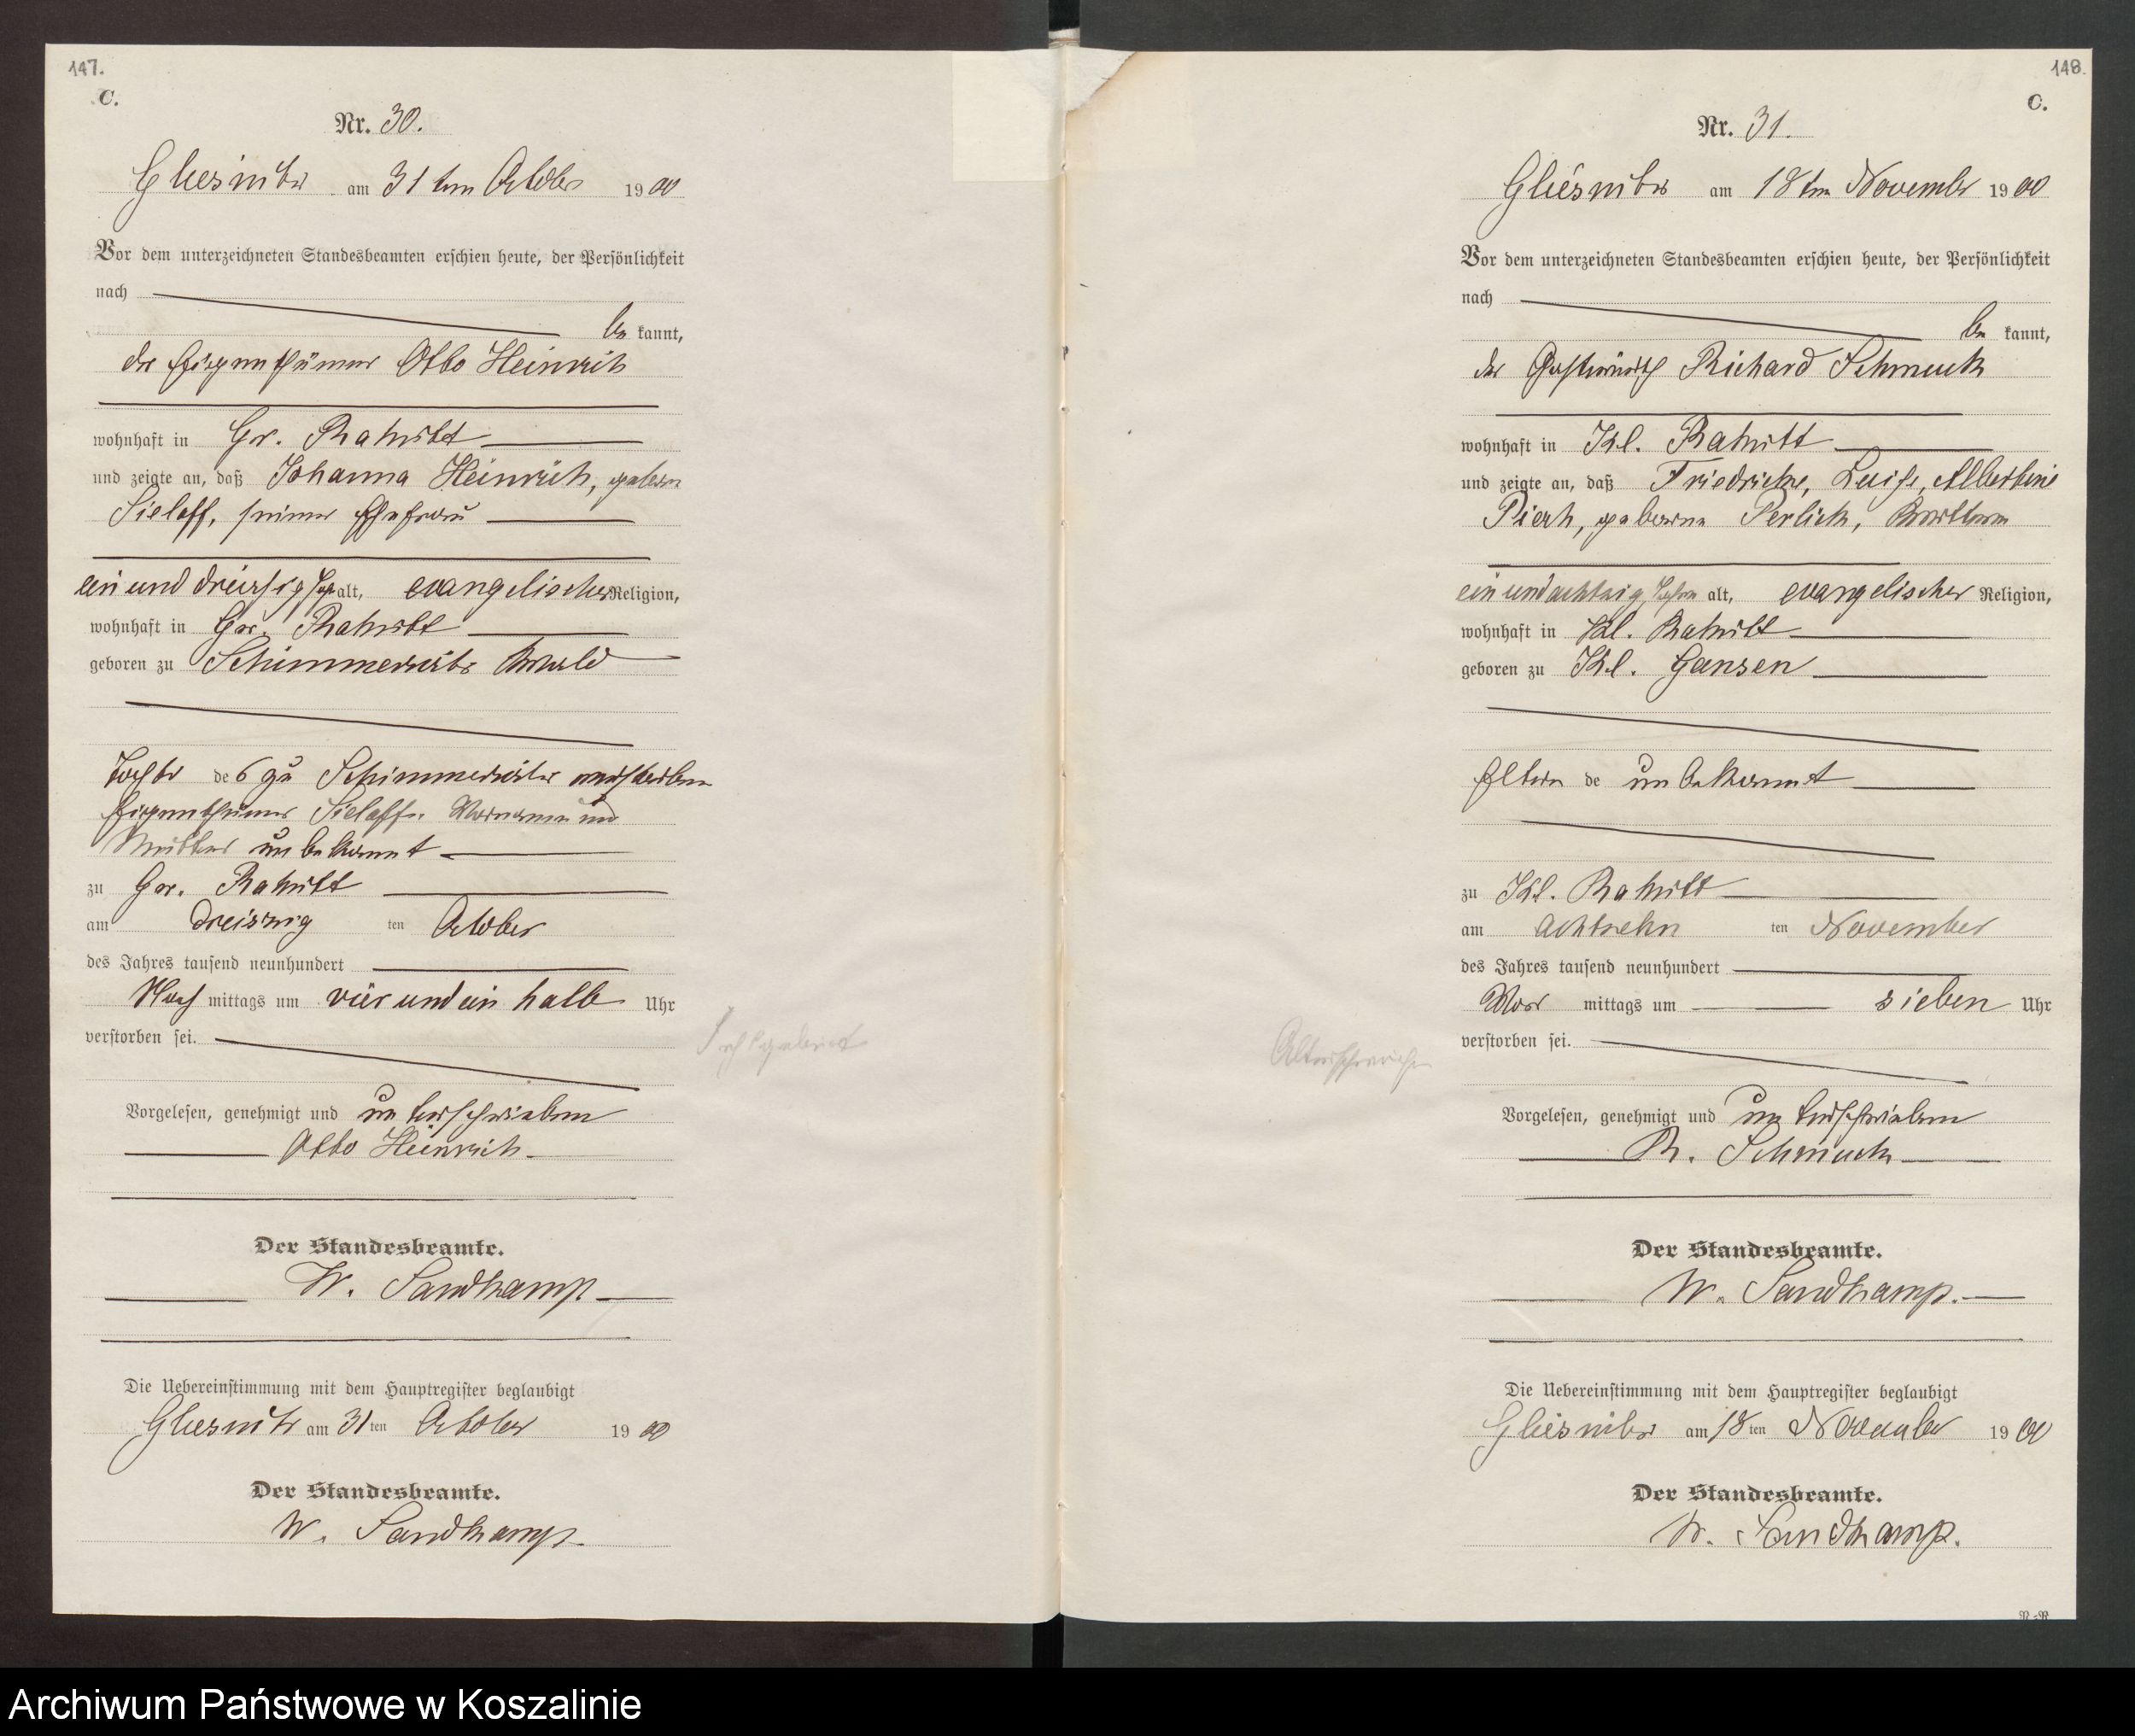 147.
C.
Nr. 30.
Gliesnitz am 31ten October 1900
Vor dem unterzeichneten Standesbeamten erschien heute, der Persönlichkeit
nach
be kannt,
der Eigenthümer Otto Heinrich
wohnhaft in Gr. Rakitt
und zeigte an, daß Johanna Heinrich, geborn
Sielaff, seiner Ehefrau
ein und dreissig Jahr alt, evangelischer Religion,
wohnhaft in Gr. Rakitt
geboren zu Schimmerwitz
Tochter des zu Schimmerwitz verstorben
Eigenthümer Sielaff. Vornamen und
Mutter unbekannt
zu Gr. Rakitt
am dreiszig ten October
des Jahres tausend neunhundert
Nach mittags um vier und ein halb Uhr
verstorben sei.
Vorgelesen, genehmigt und unterschrieben
Otto Heinrich.
Der Standesbeamte.
W. Sandkamp
Die Uebereinstimmung mit dem Hauptregister beglaubigt
Gliesnitz am 31ten October 1900
Der Standesbeamte.
W. Sandkamp.
148.
C.
Nr. 31.
Gliesnitz am 18ten November 1900
Vor dem unterzeichneten Standesbeamten erschien heute, der Persönlichkeit
nach
be kannt,
der Gastwirth Richard Schmuck
wohnhaft in Kl. Rakitt
und zeigte an, daß Friedricke, Luise, Albertine
geborne Perlick,
ein und achtzig Jahre alt, evangelischer Religion,
wohnhaft in Kl. Rakitt
geboren zu Kl. Gansen
Eltern de unbekannt
zu Kl. Rakitt
am achtzehn ten November
des Jahres tausend neunhundert
Vor mittags um sieben Uhr
verstorben sei.
Altersschwäche
Vorgelesen, genehmigt und unterschrieben
R. Schmuck
Der Standesbeamte.
W. Sandkamp.
Die Uebereinstimmung mit dem Hauptregister beglaubigt
Gliesnitz am 18ten November 1900
Der Standesbeamte.
W. Sandkamp.
Archiwum Państwowe w Koszalinie